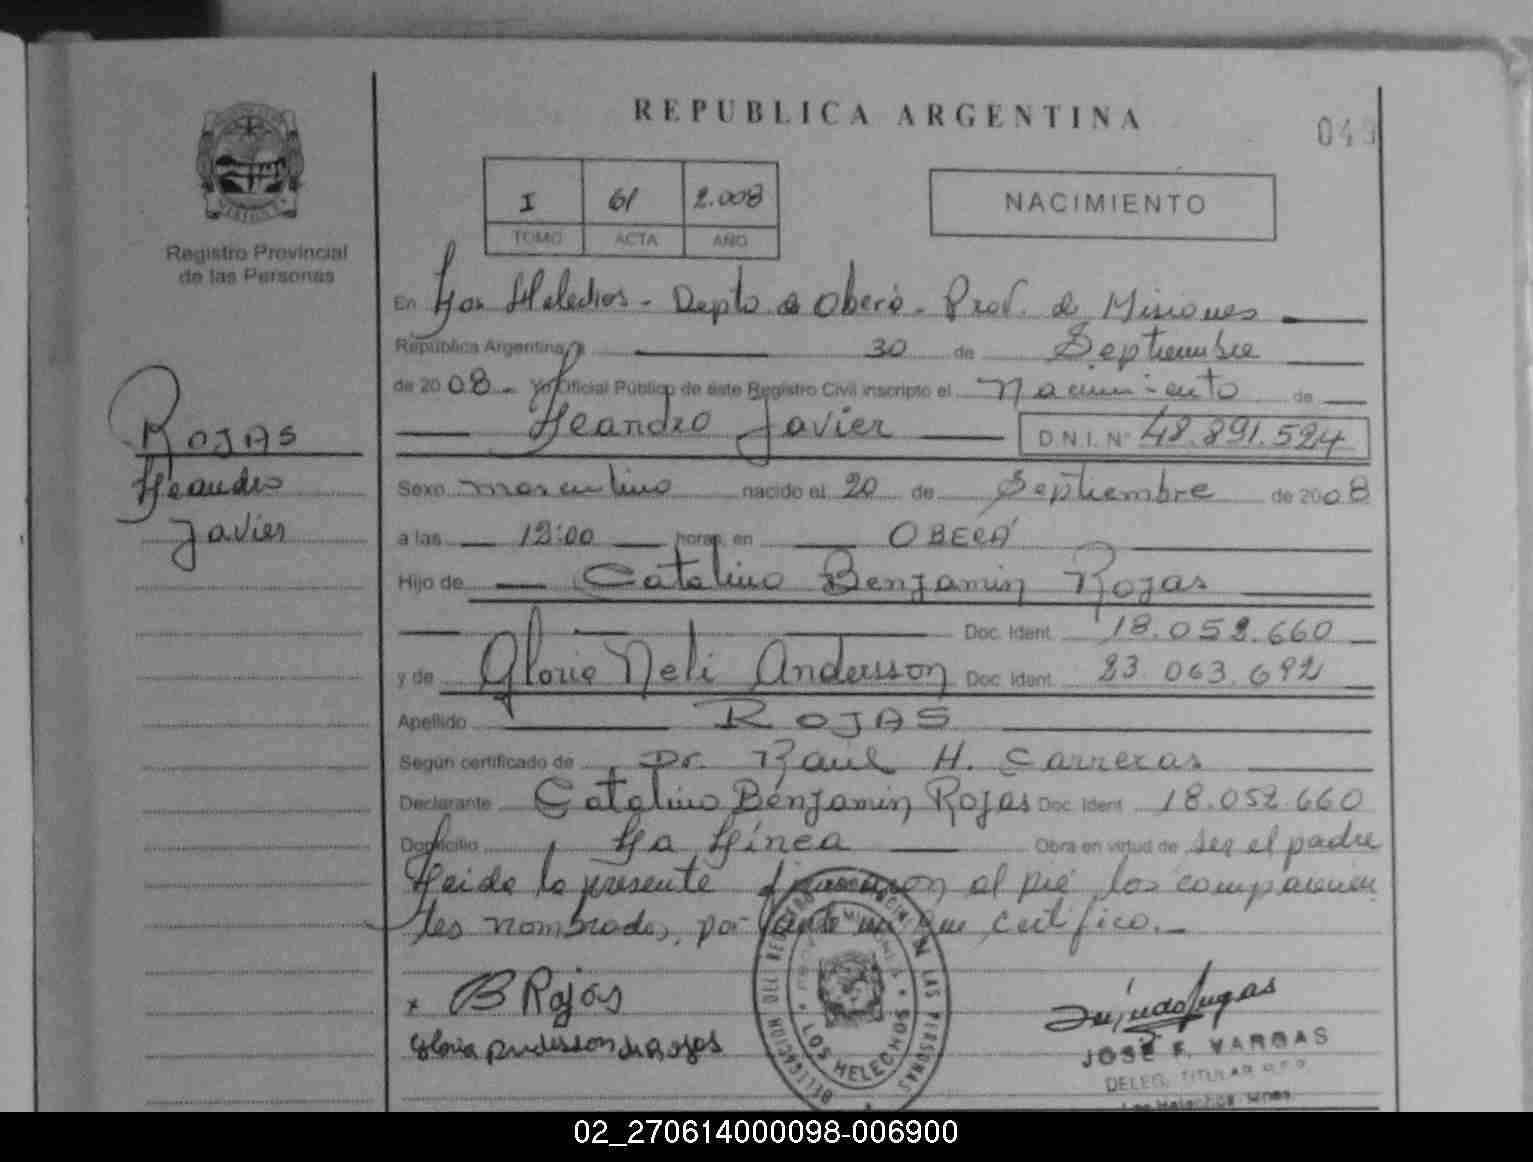 REPUBLICA ARGENTINA
049
I 61 2.008
TOMO ACTA AÑO
NACIMIENTO
Registro Provincial
de las Personas
En Los Helechos - Depto. de Oberá - Prov. de Misiones
República Argentina, a 30 de Septiembre
de 2008 - Yo Oficial Público de éste Registro Civil inscripto el Nacimiento de
Leandro Javier D.N.I. N° 48.891.524
ROJAS
Leandro
Javier
Sexo masculino nacido el 20 de Septiembre de 2008
a las 12:00 horas, en OBERÁ
Hijo de Catalino Benjamin Rojas
Doc. Ident. 18.052.660
y de Gloria Neli Andersson Doc. Ident. 23.063.692
Apellido ROJAS
Según certificado de Dr. Raúl H. Carreras
Declarante Catalino Benjamin Rojas Doc. Ident. 18.052.660
Domicilio La Línea Obra en virtud de ser el padre
Leida la presente firmaron al pié los comparecien
tes nombrados, por ante mi que certifico.-
x B Rojas
Gloria Andersson de Rojas
DELEGACION DEL REGISTRO PROVINCIAL DE LAS PERSONAS
LOS HELECHOS
JOSE F. VARGAS
DELEG. TITULAR
Los Helechos Mnes
02_270614000098-006900